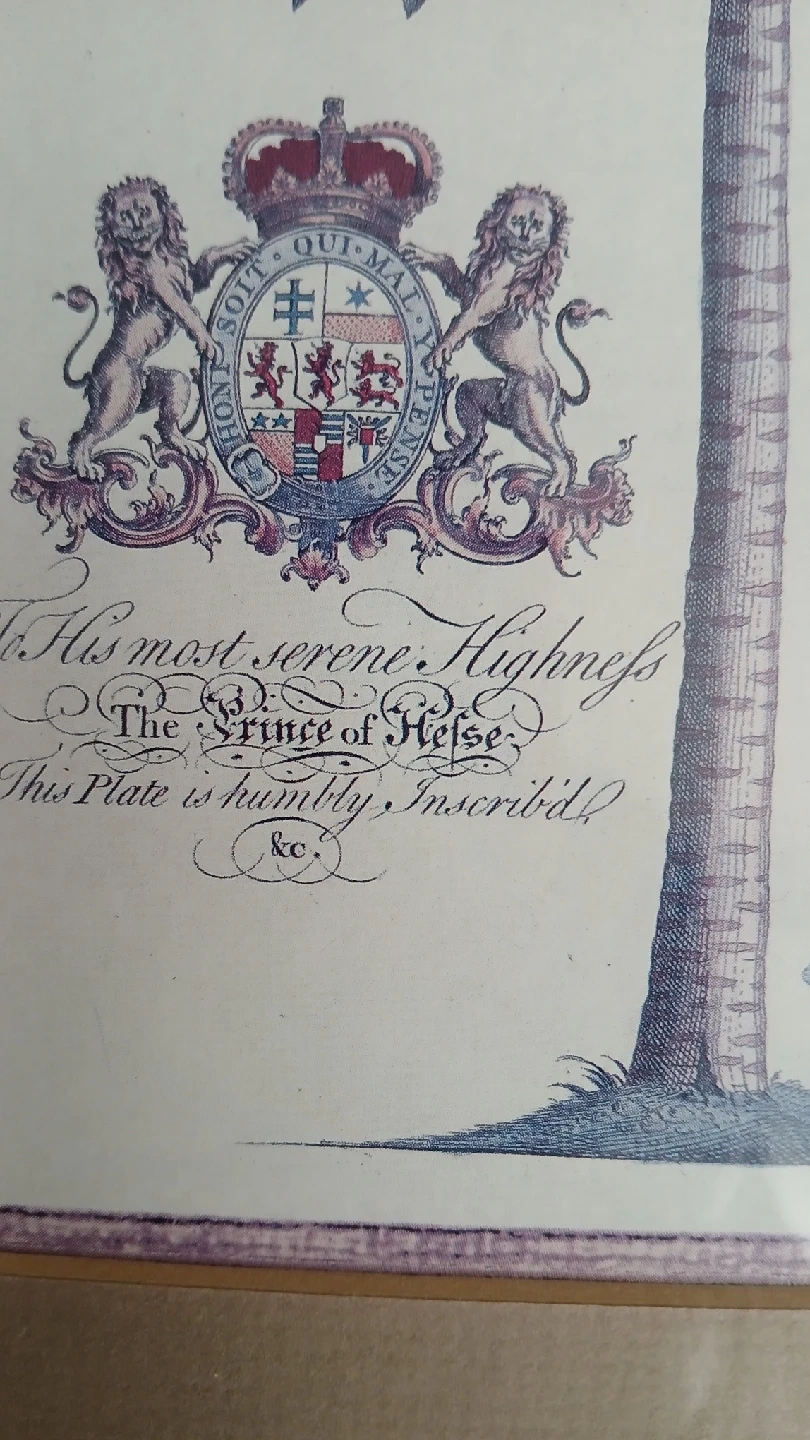 HONI · SOIT · QUI · MAL · Y · PENSE ·
To His most serene Highneſs
The Prince of Heſse
This Plate is humbly Inscrib'd,
&c.